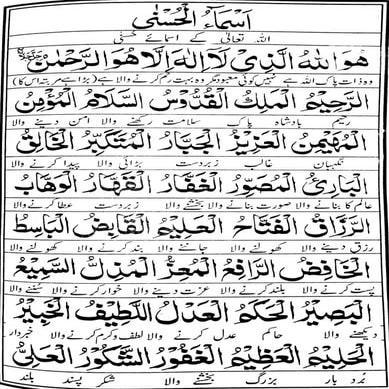 اسماءُ الحُسنٰی
اللہ تعالیٰ کے اسمائے حسنیٰ
هُوَاللهُ الَّذِیْ لَآ اِلٰهَ اِلَّا هُوَ الرَّحْمٰنُ
وہ ذات پاک اللہ ہے نہیں کوئی معبود مگر وہ بہت رحم کرنے والا ہے
الرَّحِيْمُ الْمَلِكُ الْقُدُّوْسُ السَّلَامُ الْمُؤْمِنُ
رحیم بادشاہ پاک سلامت رکھنے والا امن دینے والا
الْمُهَيْمِنُ الْعَزِيْزُ الْجَبَّارُ الْمُتَكَبِّرُ الْخَالِقُ
نگہبان غالب زبردست بڑائی والا پیدا کرنے والا
الْبَارِئُ الْمُصَوِّرُ الْغَفَّارُ الْقَهَّارُ الْوَهَّابُ
عالم کا بنانے والا صورت بنانے والا بخشنے والا زبردست عطا کرنے والا
الرَّزَّاقُ الْفَتَّاحُ الْعَلِيْمُ الْقَابِضُ الْبَاسِطُ
رزق دینے والا کھولنے والا جاننے والا بند کرنے والا کھولنے والا
الْخَافِضُ الرَّافِعُ الْمُعِزُّ الْمُذِلُّ السَّمِيْعُ
پست کرنے والا بلند کرنے والا عزت دینے والا خوار کرنے والا سننے والا
الْبَصِيْرُ الْحَكَمُ الْعَدْلُ اللَّطِيْفُ الْخَبِيْرُ
دیکھنے والا حاکم عدل کرنے والا لطف و کرم کرنے والا خبردار
الْحَلِيْمُ الْعَظِيْمُ الْغَفُوْرُ الشَّكُوْرُ الْعَلِيُّ
بُردبار بزرگ بخشنے والا شکر پسند بلند